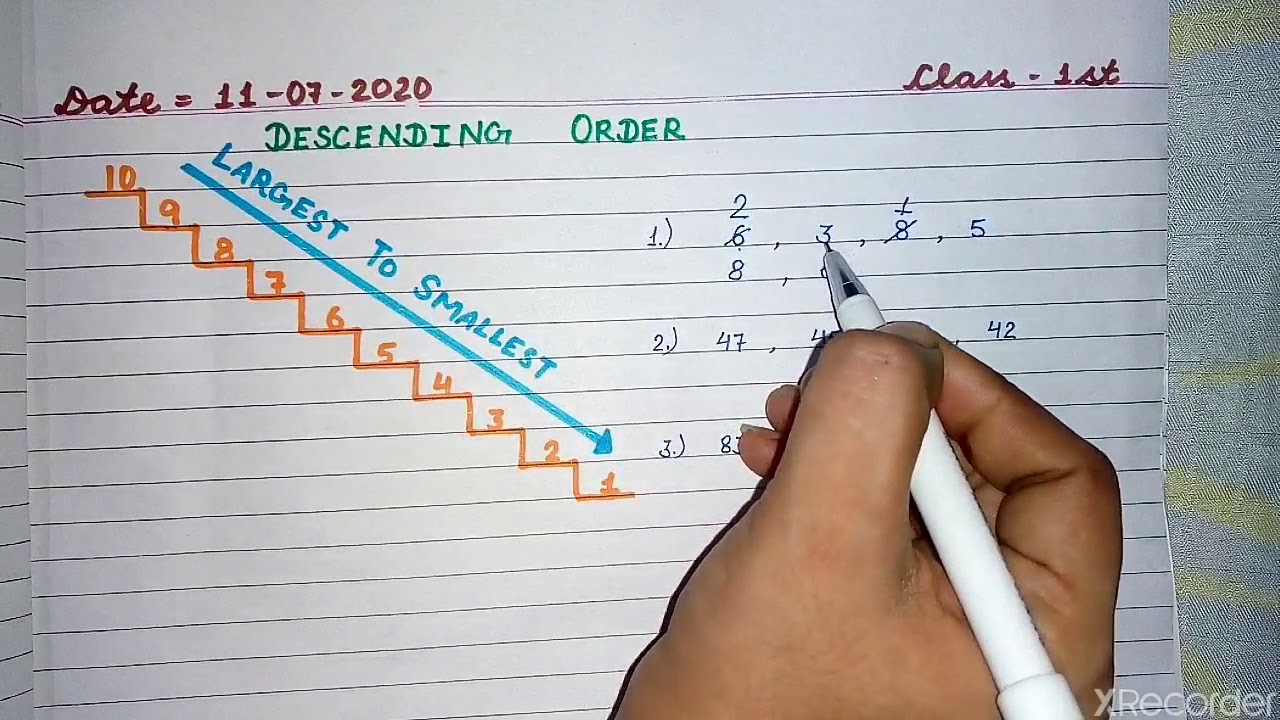 Date = 11-07-2020
Class - 1st
DESCENDING ORDER
LARGEST TO SMALLEST
10
9
8
7
6
5
4
3
2
1
2 1
1.) 6 , 3 , 8 , 5
8 ,
2.) 47 , , 42
3.)
XRecorder